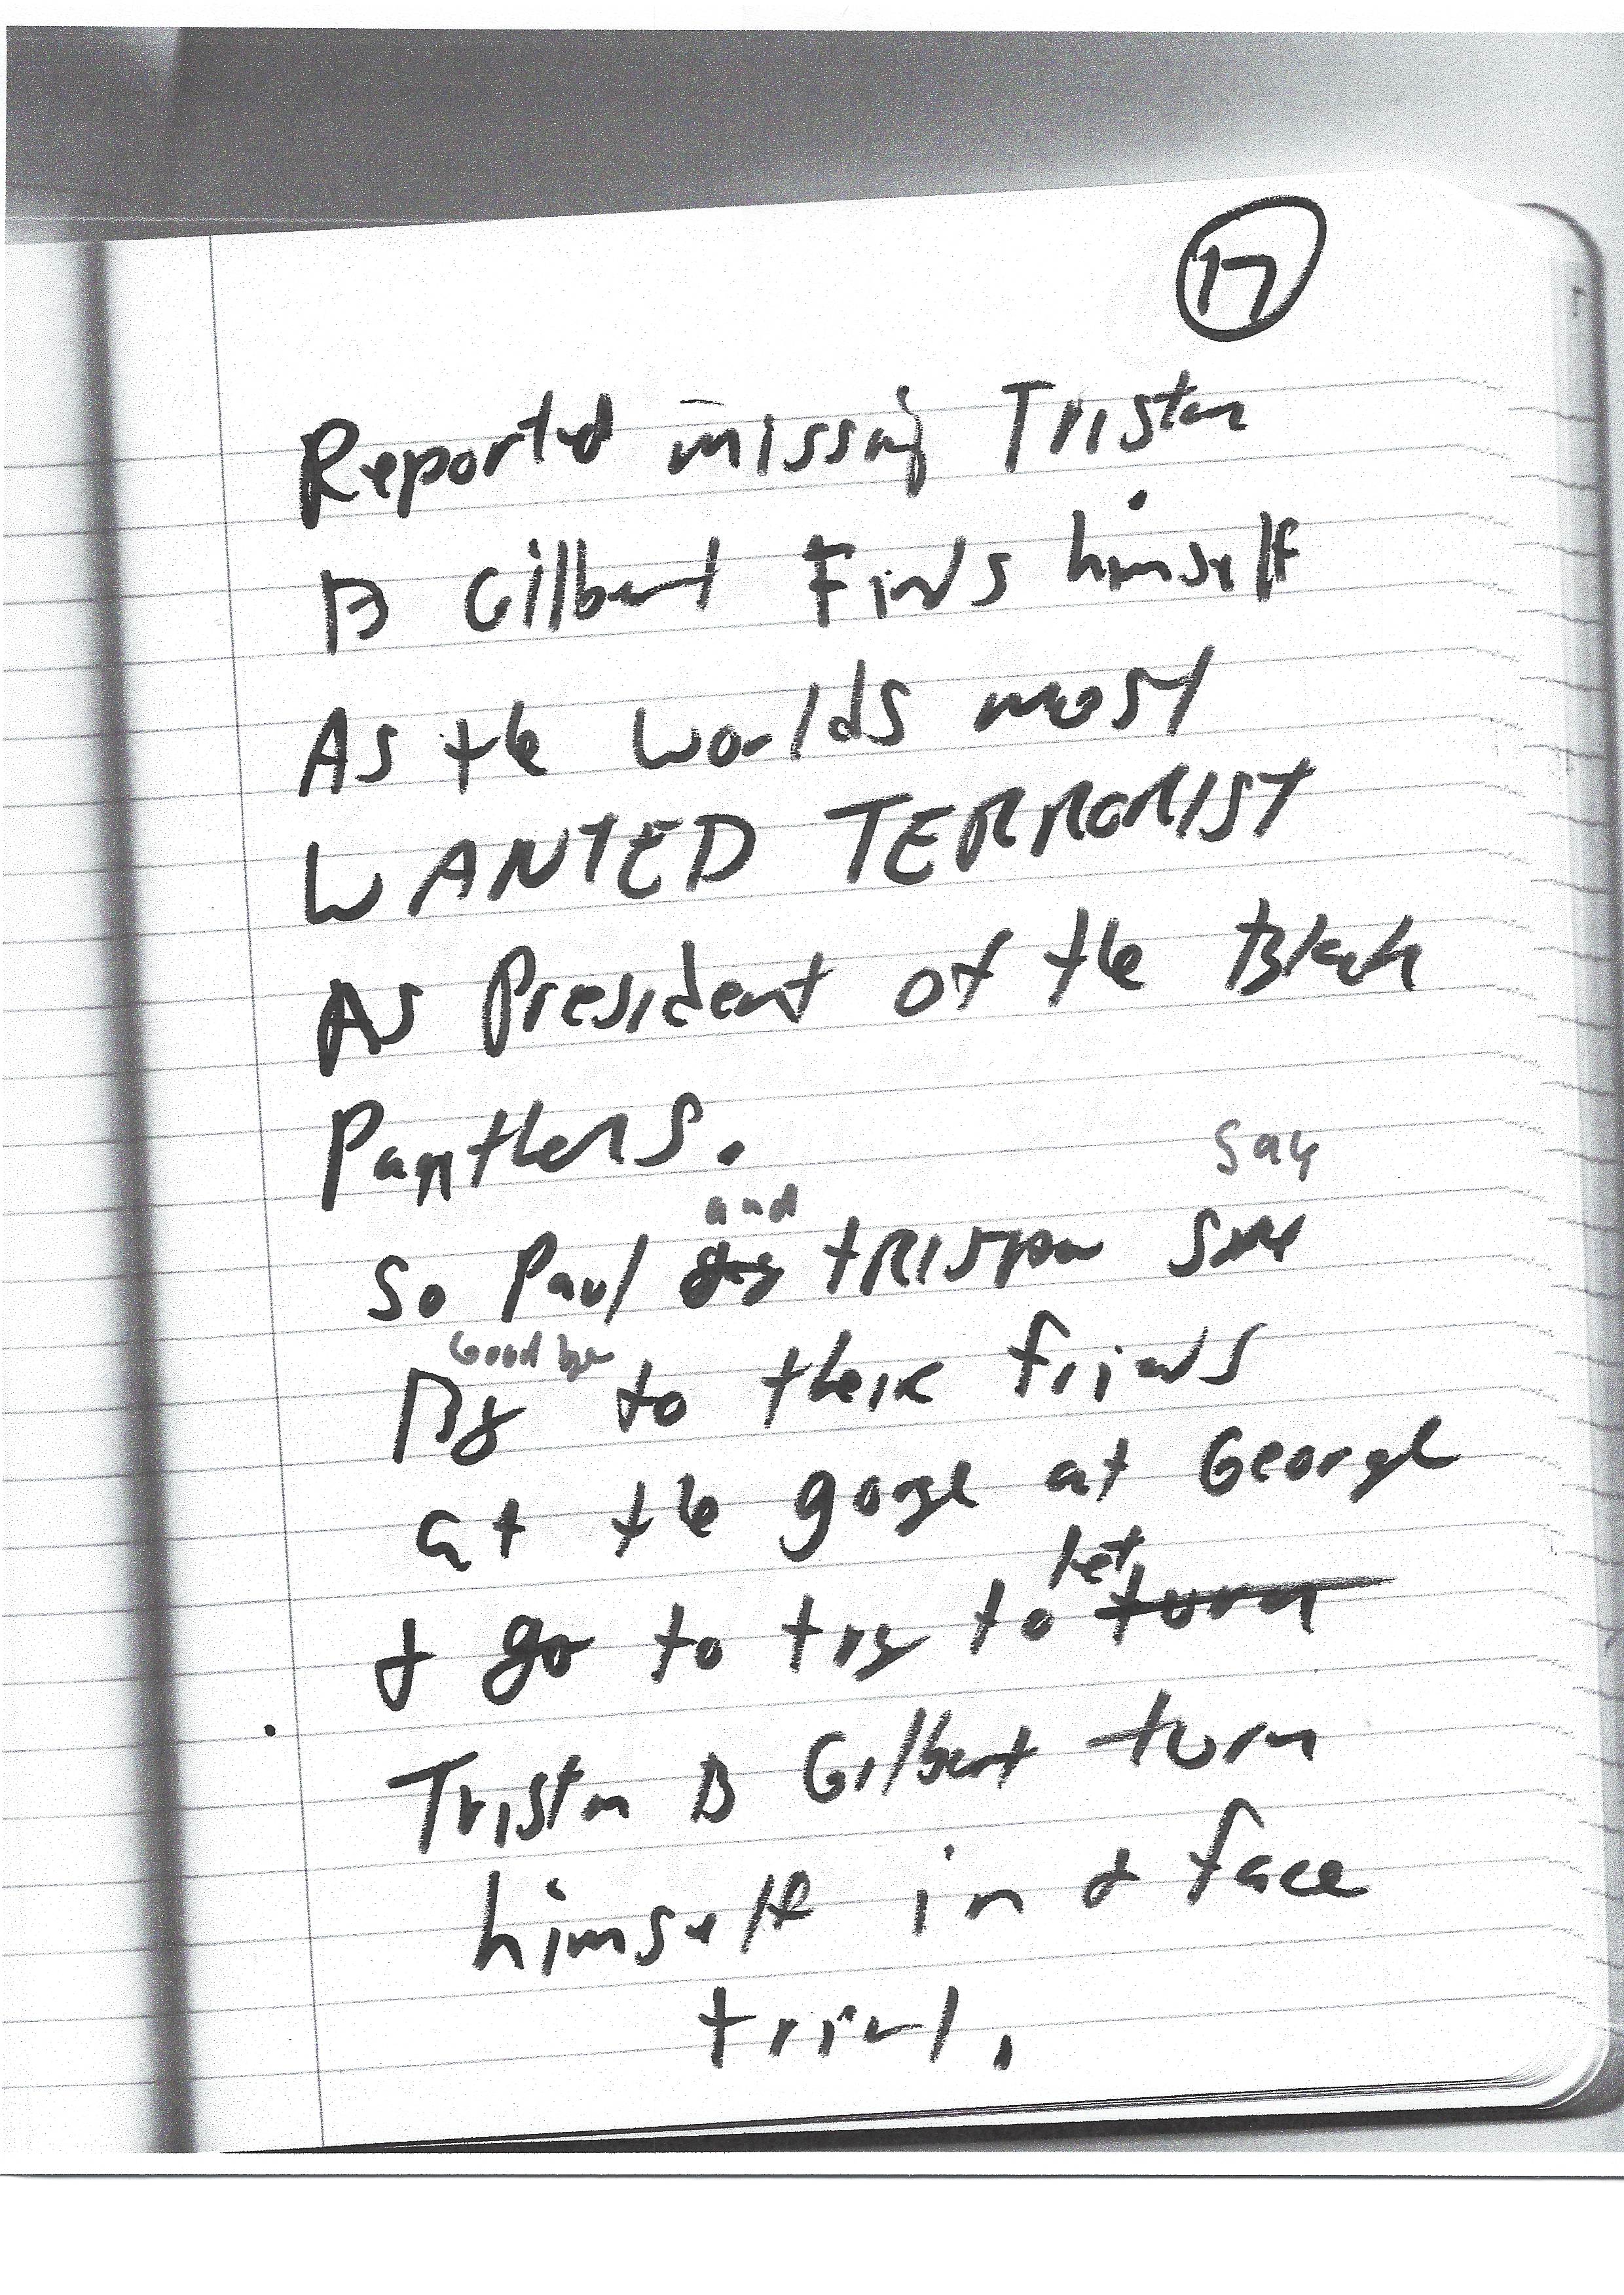 17
Reported missing Tristan
B Gilbert Finds himself
As the worlds most
WANTED TERRORIST
As President of the Black
Panthers.
and say
So Paul TRISTAN
Goodbye
By to there friends
at the gorge at George
let
& go to try to turn
Tristan B Gilbert turn
himself in & face
trial.